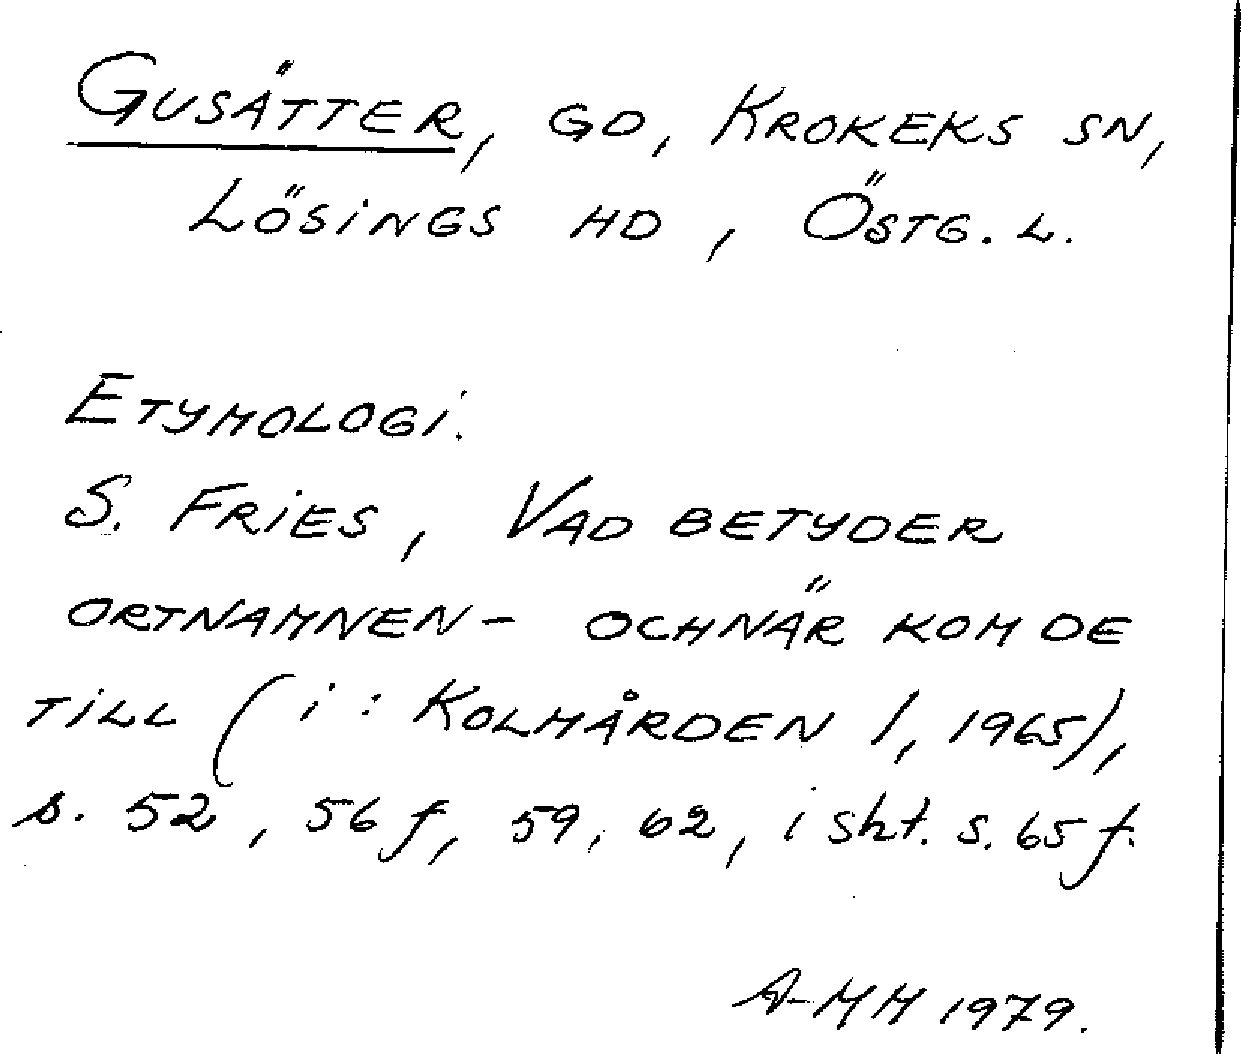 GUSÄTTER, GD, KROKEKS SN,
LÖSINGS HD, ÖSTG. L.
ETYMOLOGI:
S. FRIES, VAD BETYDER
ORTNAMNEN - OCH NÄR KOM DE
TILL (i: KOLMÅRDEN 1, 1965),
s. 52, 56 f, 59, 62, i skt. s. 65 f.
A-MM 1979.